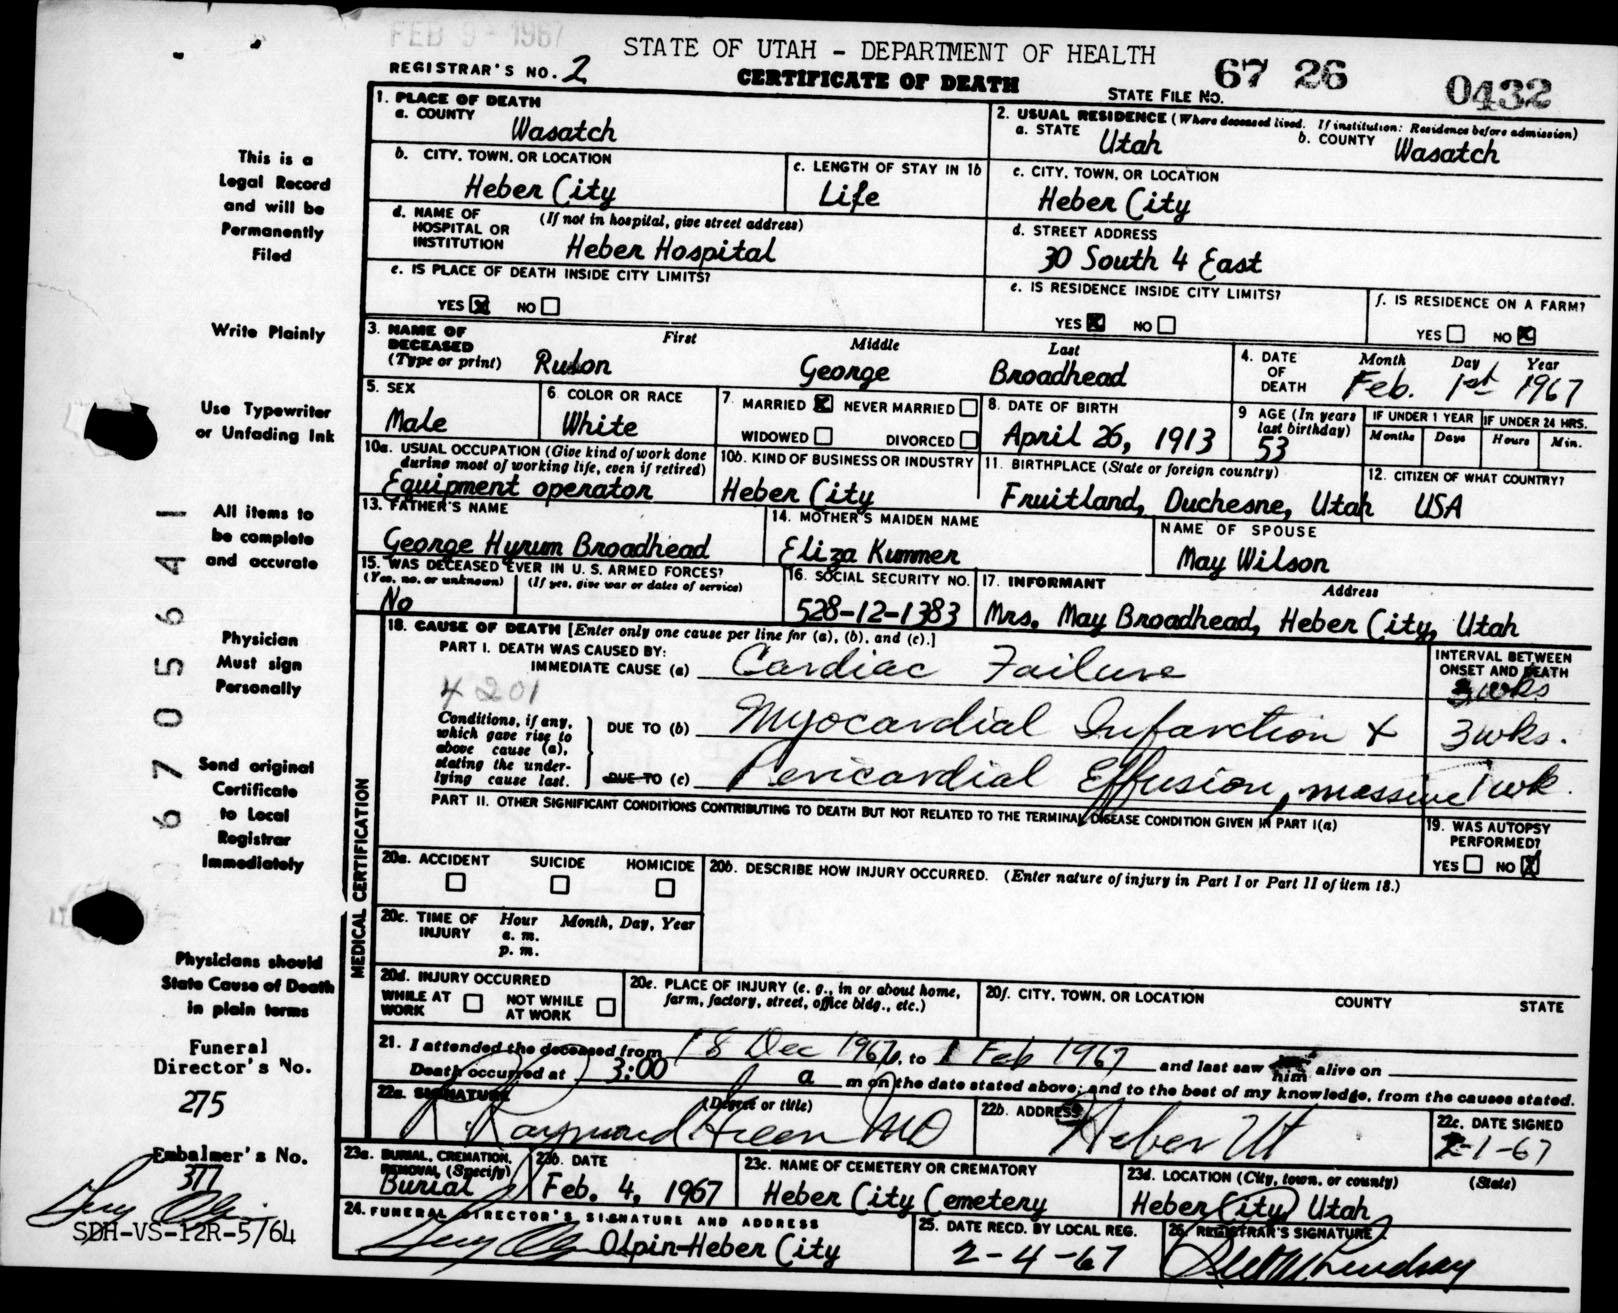 FEB 9 - 1967
STATE OF UTAH - DEPARTMENT OF HEALTH
REGISTRAR'S NO. 2
CERTIFICATE OF DEATH
STATE FILE NO. 67 26 0432
This is a
Legal Record
and will be
Permanently
Filed
Write Plainly
Use Typewriter
or Unfading Ink
All items to
be complete
and accurate
Physician
Must sign
Personally
Send original
Certificate
to Local
Registrar
Immediately
Physicians should
State Cause of Death
in plain terms
Funeral
Director's No.
275
Embalmer's No.
377
SDH-VS-12R-5/64
6705641
1. PLACE OF DEATH
a. COUNTY
Wasatch
2. USUAL RESIDENCE (Where deceased lived. If institution: Residence before admission)
a. STATE Utah b. COUNTY Wasatch
b. CITY, TOWN, OR LOCATION
Heber City
c. LENGTH OF STAY IN 1b
Life
c. CITY, TOWN, OR LOCATION
Heber City
d. NAME OF HOSPITAL OR INSTITUTION (If not in hospital, give street address)
Heber Hospital
d. STREET ADDRESS
30 South 4 East
e. IS PLACE OF DEATH INSIDE CITY LIMITS?
YES NO
e. IS RESIDENCE INSIDE CITY LIMITS?
YES NO
f. IS RESIDENCE ON A FARM?
YES NO
3. NAME OF DECEASED (Type or print)
First Middle Last
Rulon George Broadhead
4. DATE OF DEATH
Month Day Year
Feb. 1st 1967
5. SEX
Male
6. COLOR OR RACE
White
7. MARRIED NEVER MARRIED
WIDOWED DIVORCED
8. DATE OF BIRTH
April 26, 1913
9 AGE (In years last birthday)
53
IF UNDER 1 YEAR
Months Days
IF UNDER 24 HRS.
Hours Min.
10a. USUAL OCCUPATION (Give kind of work done during most of working life, even if retired)
Equipment operator
10b. KIND OF BUSINESS OR INDUSTRY
Heber City
11. BIRTHPLACE (State or foreign country)
Fruitland, Duchesne, Utah
12. CITIZEN OF WHAT COUNTRY?
USA
13. FATHER'S NAME
George Hyrum Broadhead
14. MOTHER'S MAIDEN NAME
Eliza Kummer
NAME OF SPOUSE
May Wilson
15. WAS DECEASED EVER IN U.S. ARMED FORCES?
(Yes, no, or unknown) (If yes, give war or dates of service)
No
16. SOCIAL SECURITY NO.
528-12-1383
17. INFORMANT Address
Mrs. May Broadhead, Heber City, Utah
MEDICAL CERTIFICATION
18. CAUSE OF DEATH [Enter only one cause per line for (a), (b), and (c).]
PART I. DEATH WAS CAUSED BY:
IMMEDIATE CAUSE (a) Cardiac Failure
INTERVAL BETWEEN ONSET AND DEATH
wks
4201
Conditions, if any, which gave rise to above cause (a), stating the underlying cause last.
DUE TO (b) Myocardial Infarction + 3 wks.
DUE TO (c) Pericardial Effusion, massive 1 wk.
PART II. OTHER SIGNIFICANT CONDITIONS CONTRIBUTING TO DEATH BUT NOT RELATED TO THE TERMINAL DISEASE CONDITION GIVEN IN PART I(a)
19. WAS AUTOPSY PERFORMED?
YES NO
20a. ACCIDENT SUICIDE HOMICIDE
20b. DESCRIBE HOW INJURY OCCURRED. (Enter nature of injury in Part I or Part II of item 18.)
20c. TIME OF INJURY
Hour Month, Day, Year
a. m.
p. m.
20d. INJURY OCCURRED
WHILE AT WORK NOT WHILE AT WORK
20e. PLACE OF INJURY (e. g., in or about home, farm, factory, street, office bldg., etc.)
20f. CITY, TOWN, OR LOCATION COUNTY STATE
21. I attended the deceased from 18 Dec 1966, to 1 Feb 1967 and last saw him alive on
Death occurred at 3:00 a m on the date stated above; and to the best of my knowledge, from the causes stated.
22a. SIGNATURE (Degree or title)
R. Raymond Green MD
22b. ADDRESS
Heber Ut
22c. DATE SIGNED
2-1-67
23a. BURIAL, CREMATION, REMOVAL (Specify)
Burial
23b. DATE
Feb. 4, 1967
23c. NAME OF CEMETERY OR CREMATORY
Heber City Cemetery
23d. LOCATION (City, town, or county) (State)
Heber City Utah
24. FUNERAL DIRECTOR'S SIGNATURE AND ADDRESS
Olpin-Heber City
25. DATE RECD. BY LOCAL REG.
2-4-67
26. REGISTRAR'S SIGNATURE
Lindsay